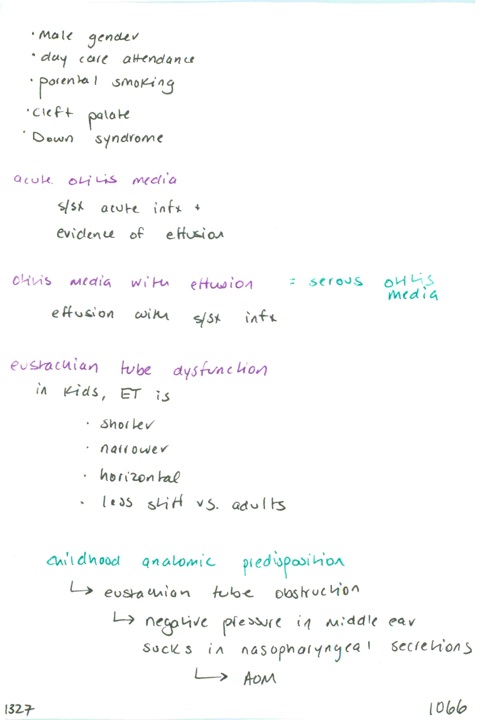 · Male gender
· day care attendance
· parental smoking
· cleft palate
· Down syndrome
acute otitis media
s/sx acute infx +
evidence of effusion
otitis media with effusion = serous otitis media
effusion with s/sx infx
eustachian tube dysfunction
in kids, ET is
· shorter
· narrower
· horizontal
· less stiff vs. adults
childhood anatomic predisposition
↳ eustachian tube obstruction
↳ negative pressure in middle ear
sucks in nasopharyngeal secretions
↳ AOM
1327 1066